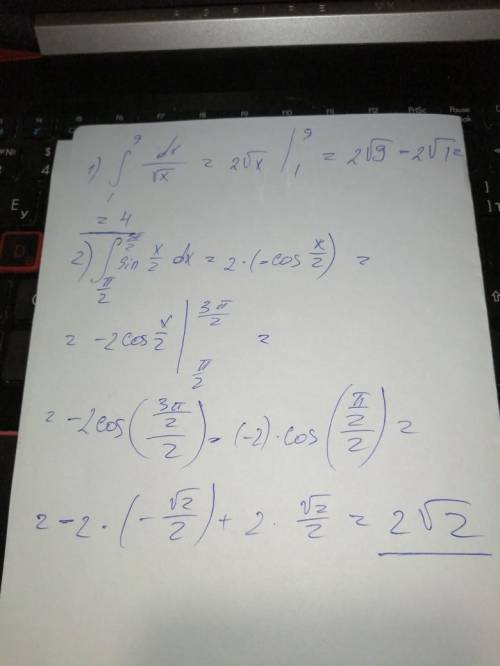 1) ∫₁⁹ dx/√x = 2√x |₁⁹ = 2√9 − 2√1 =
= 4
2) ∫_{π/2}^{3π/2} sin x/2 dx = 2·(−cos x/2) =
= −2cos x/2 |_{π/2}^{3π/2} =
= −2cos((3π/2)/2) = (−2)·cos((π/2)/2) =
= −2·(−√2/2) + 2·√2/2 = 2√2